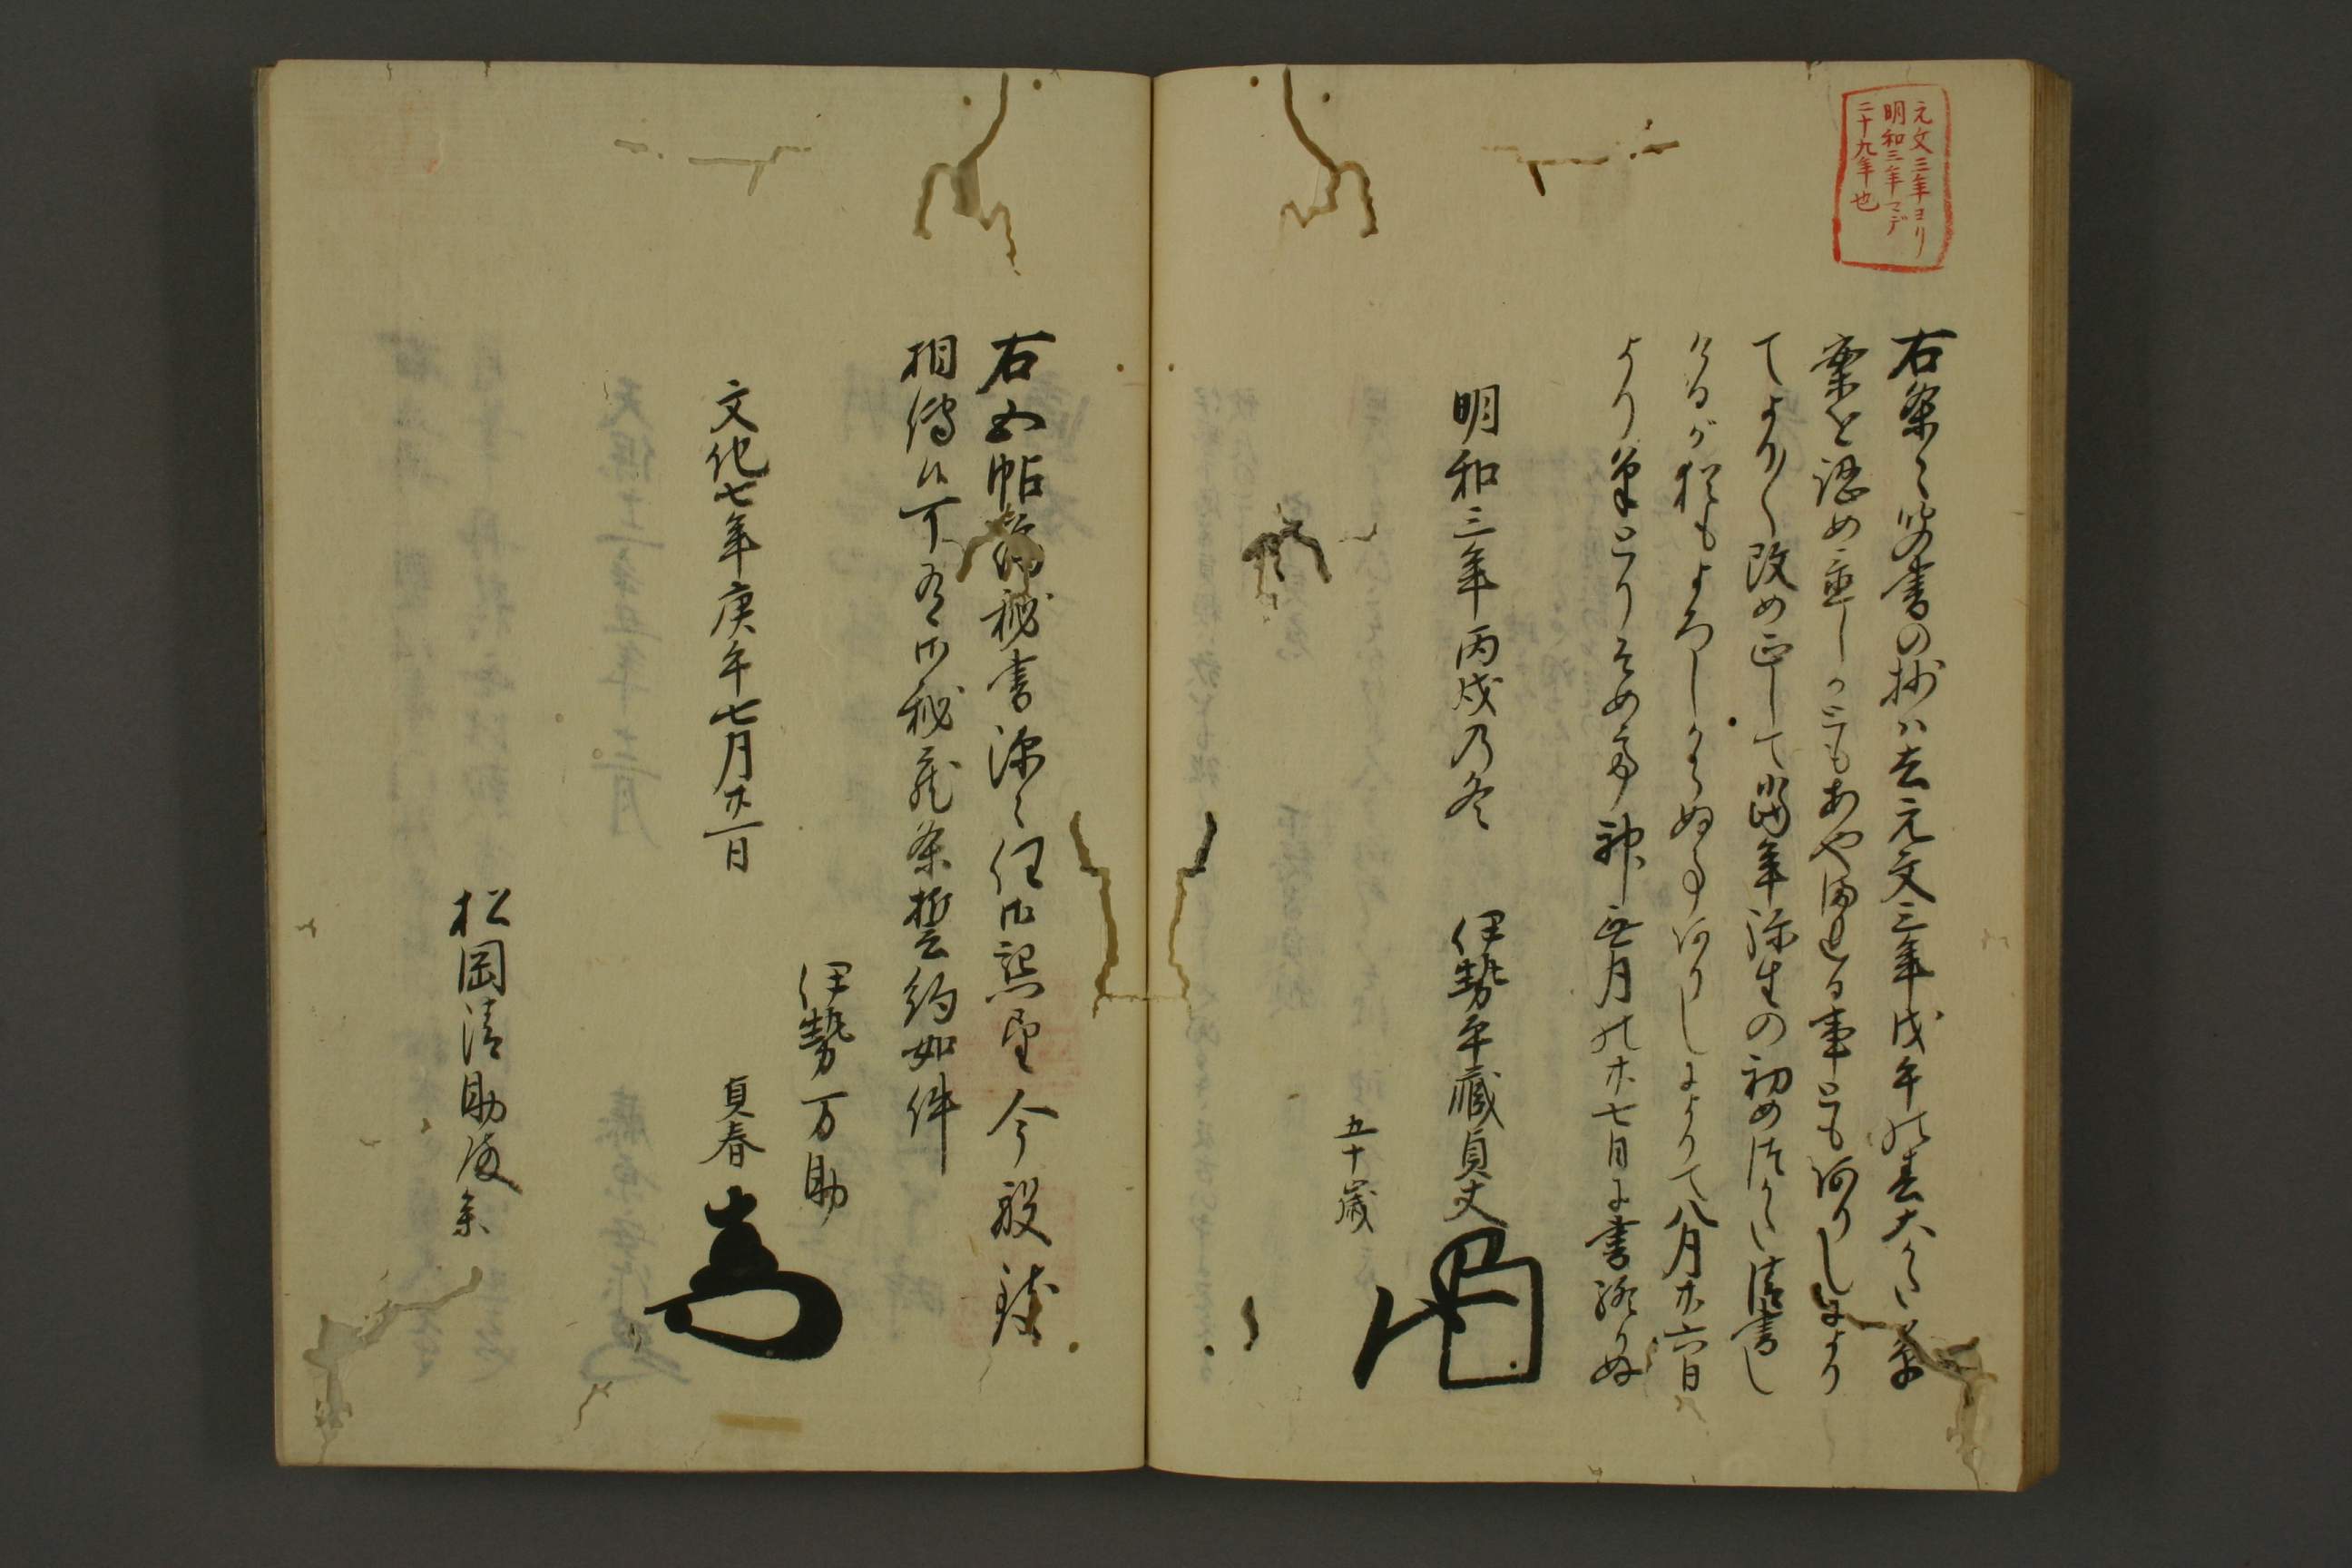 元文三年ヨリ
明和三年マデ
二十九年也
右条々の書の抄ハ去元文三年戊午の春大かた草
案を認め置しかともあやまれる事とも何りしにより
てより〳〵改め正して当年弥生の初めつかた清書し
けるが猶もよろしからぬ事何りしによりて八月廿六日
より筆とりそめ神無月の廿七日に書終りぬ
明和三年丙戌乃冬 伊勢平蔵貞丈
五十歳
右五帖 秘書深々任御懇望今般
相傳候可有御秘蔵条誓約如件
伊勢万助
文化七年庚午七月廿一日 貞春
松岡清助殿参